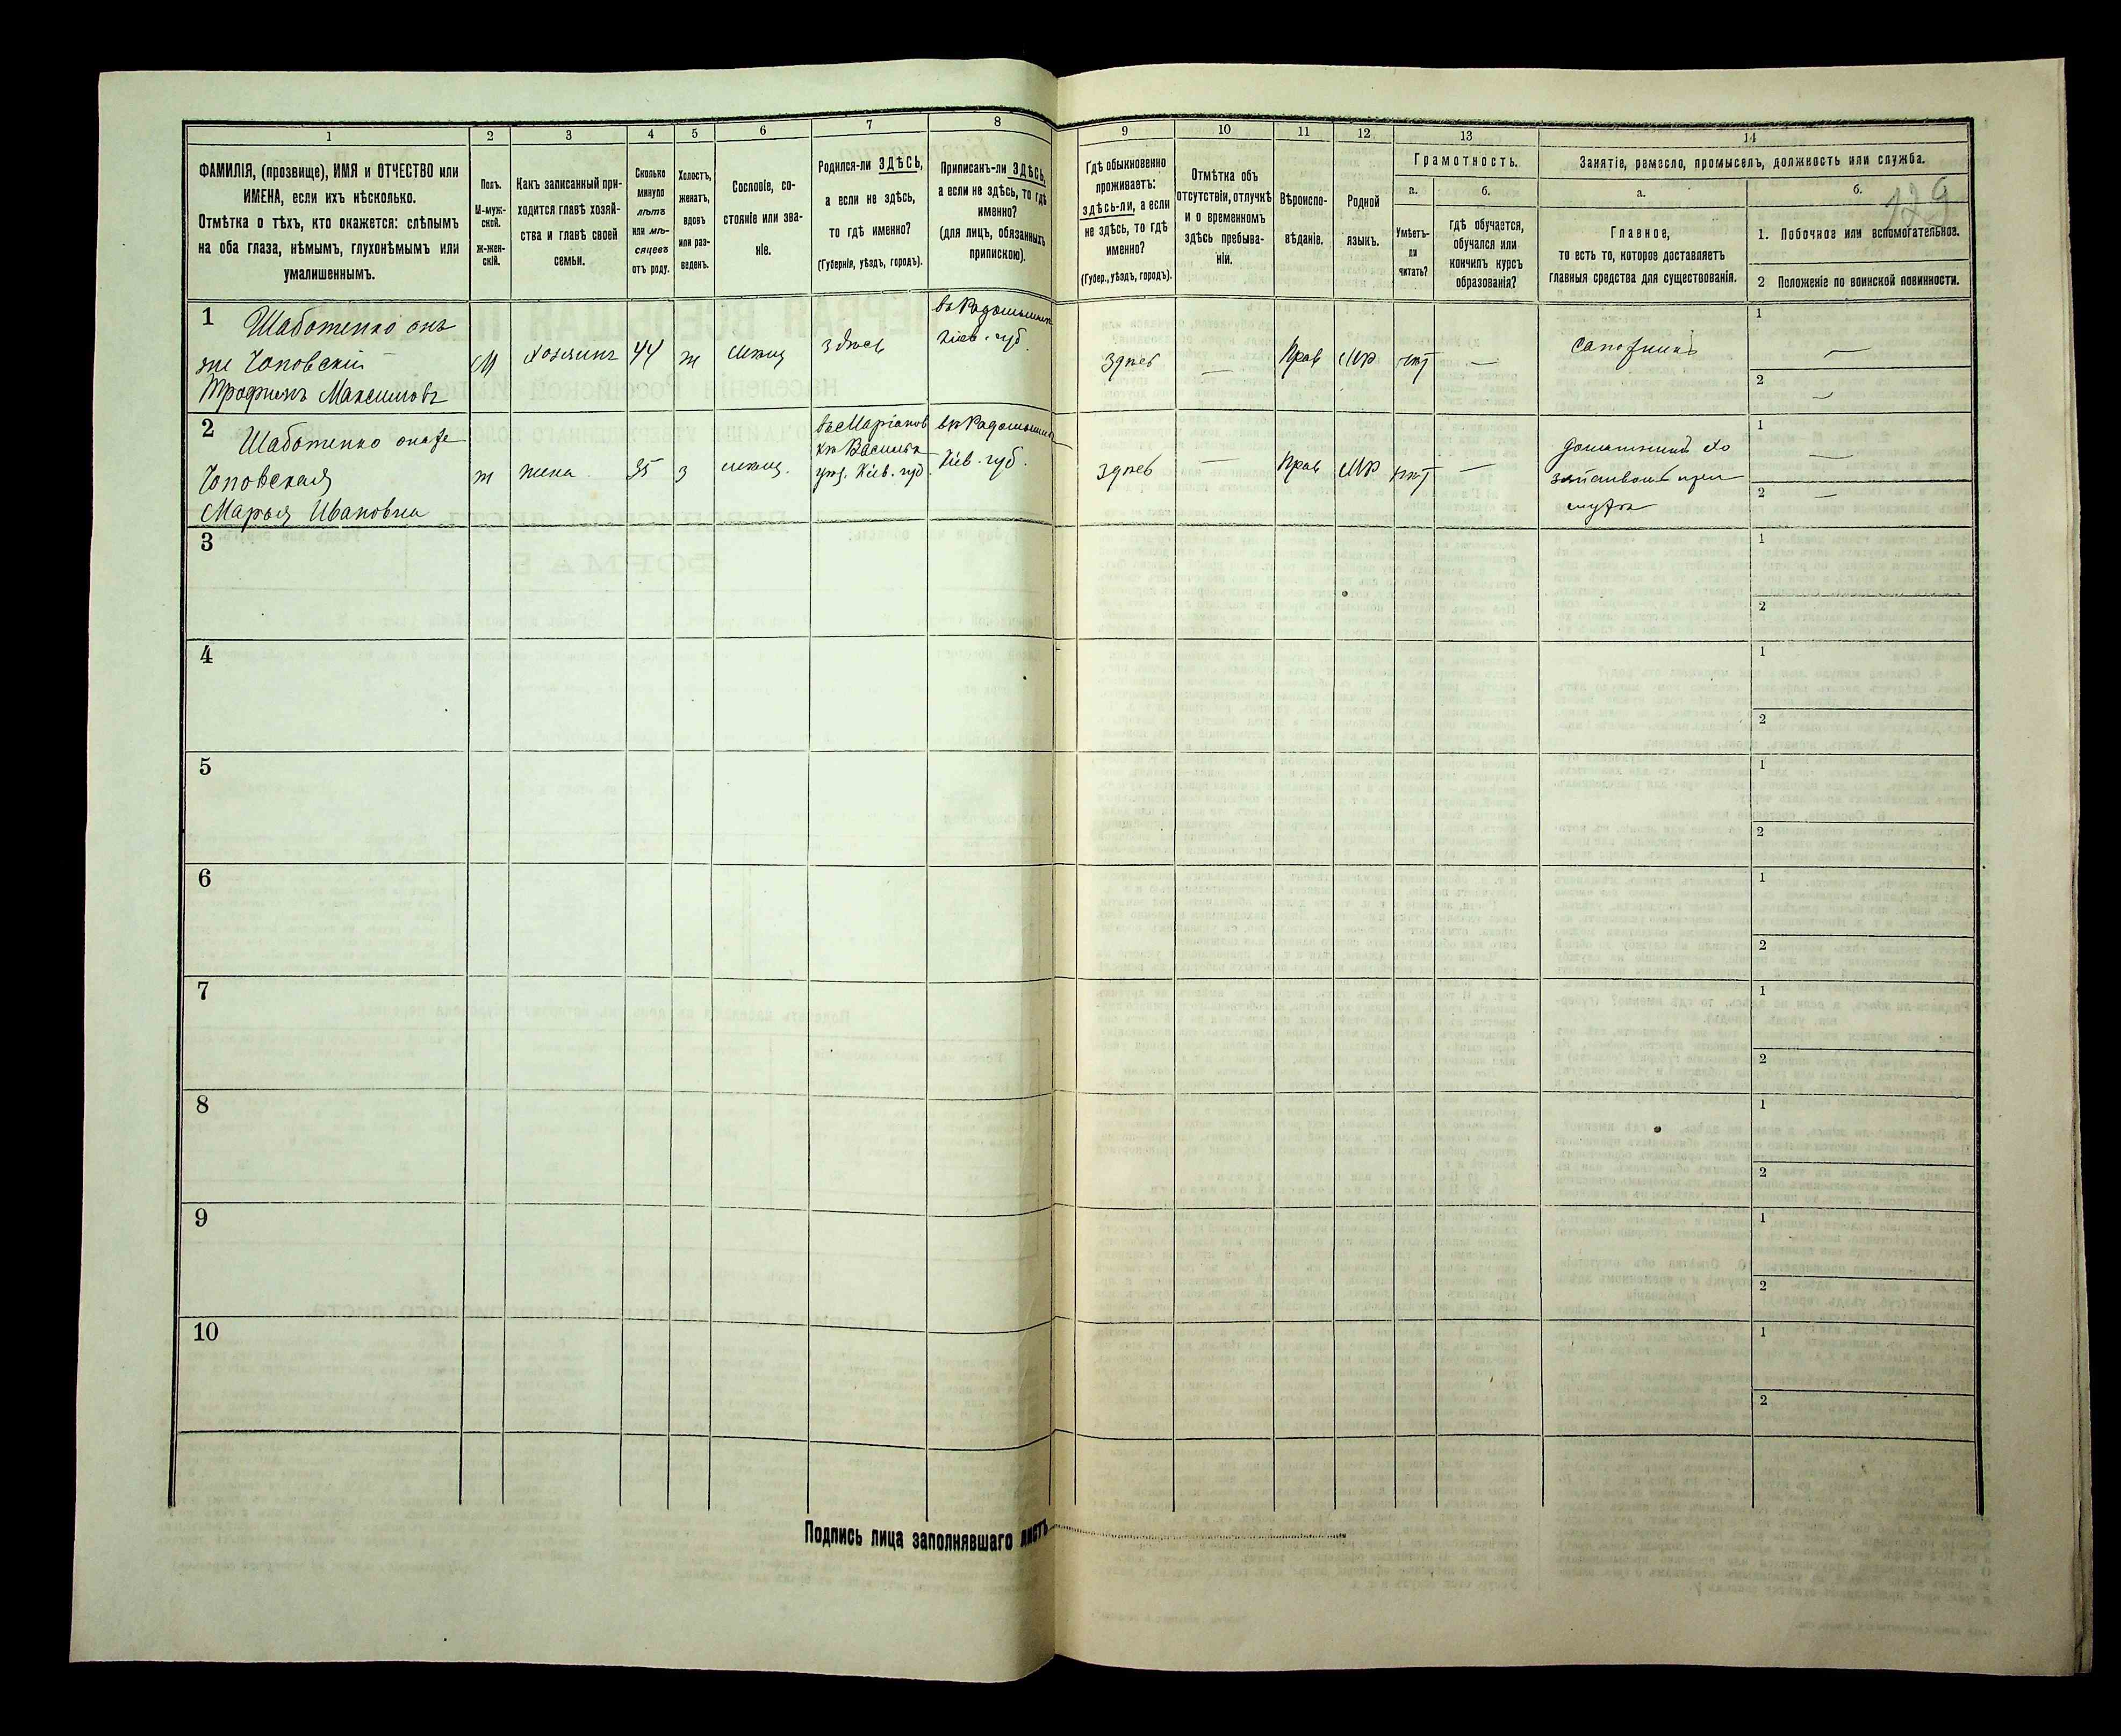 1
2
3
4
5
6
7
8
9
10
11
12
13
14
ФАМИЛІЯ, (прозвище), ИМЯ и ОТЧЕСТВО или
ИМЕНА, если ихъ нѣсколько.
Отмѣтка о тѣхъ, кто окажется: слѣпымъ
на оба глаза, нѣмымъ, глухонѣмымъ или
умалишеннымъ.
Полъ.
М-муж-
ской.
ж-жен-
скій.
Какъ записанный при-
ходится главѣ хозяй-
ства и главѣ своей
семьи.
Сколько
минуло
лѣтъ
или мѣ-
сяцевъ
отъ роду.
Холостъ,
женатъ,
вдовъ
или раз-
веденъ.
Сословіе, со-
стояніе или зва-
ніе.
Родился-ли ЗДѢСЬ,
а если не здѣсь,
то гдѣ именно?
(Губернія, уѣздъ, городъ).
Приписанъ-ли ЗДѢСЬ,
а если не здѣсь, то гдѣ
именно?
(для лицъ, обязанныхъ
припискою).
Гдѣ обыкновенно
проживаетъ:
здѣсь-ли, а если
не здѣсь, то гдѣ
именно?
(Губер., уѣздъ, городъ).
Отмѣтка объ
отсутствіи, отлучкѣ
и о временномъ
здѣсь пребыва-
ніи.
Вѣроиспо-
вѣданіе.
Родной
языкъ.
Грамотность.
а.
Умѣетъ-
ли
читать?
б.
гдѣ обучается,
обучался или
кончилъ курсъ
образованія?
Занятіе, ремесло, промыселъ, должность или служба.
а.
Главное,
то есть то, которое доставляетъ
главныя средства для существованія.
б.
129
1. Побочное или вспомогательное.
2 Положеніе по воинской повинности.
1 Шаботенко онъ
же Чоповскій
Трофимъ Максимовъ
М
хозяинъ
44
ж
мѣщ
здѣсь
въ Радомыслѣ
Кіев. губ.
здѣсь
—
Прав
МР
нѣт
—
сапожникъ
1
—
2
—
2 Шаботенко онаже
Чоповская
Марья Ивановна
ж
жена
35
з
мѣщ.
Василь
уѣз. Кіев. губ.
Кіев. губ.
здѣсь
—
Прав
МР
нѣт
—
при
мужѣ
1
—
2
—
3
1
2
4
1
2
5
1
2
6
1
2
7
1
2
8
1
2
9
1
2
10
1
2
Подпись лица заполнявшаго листъ